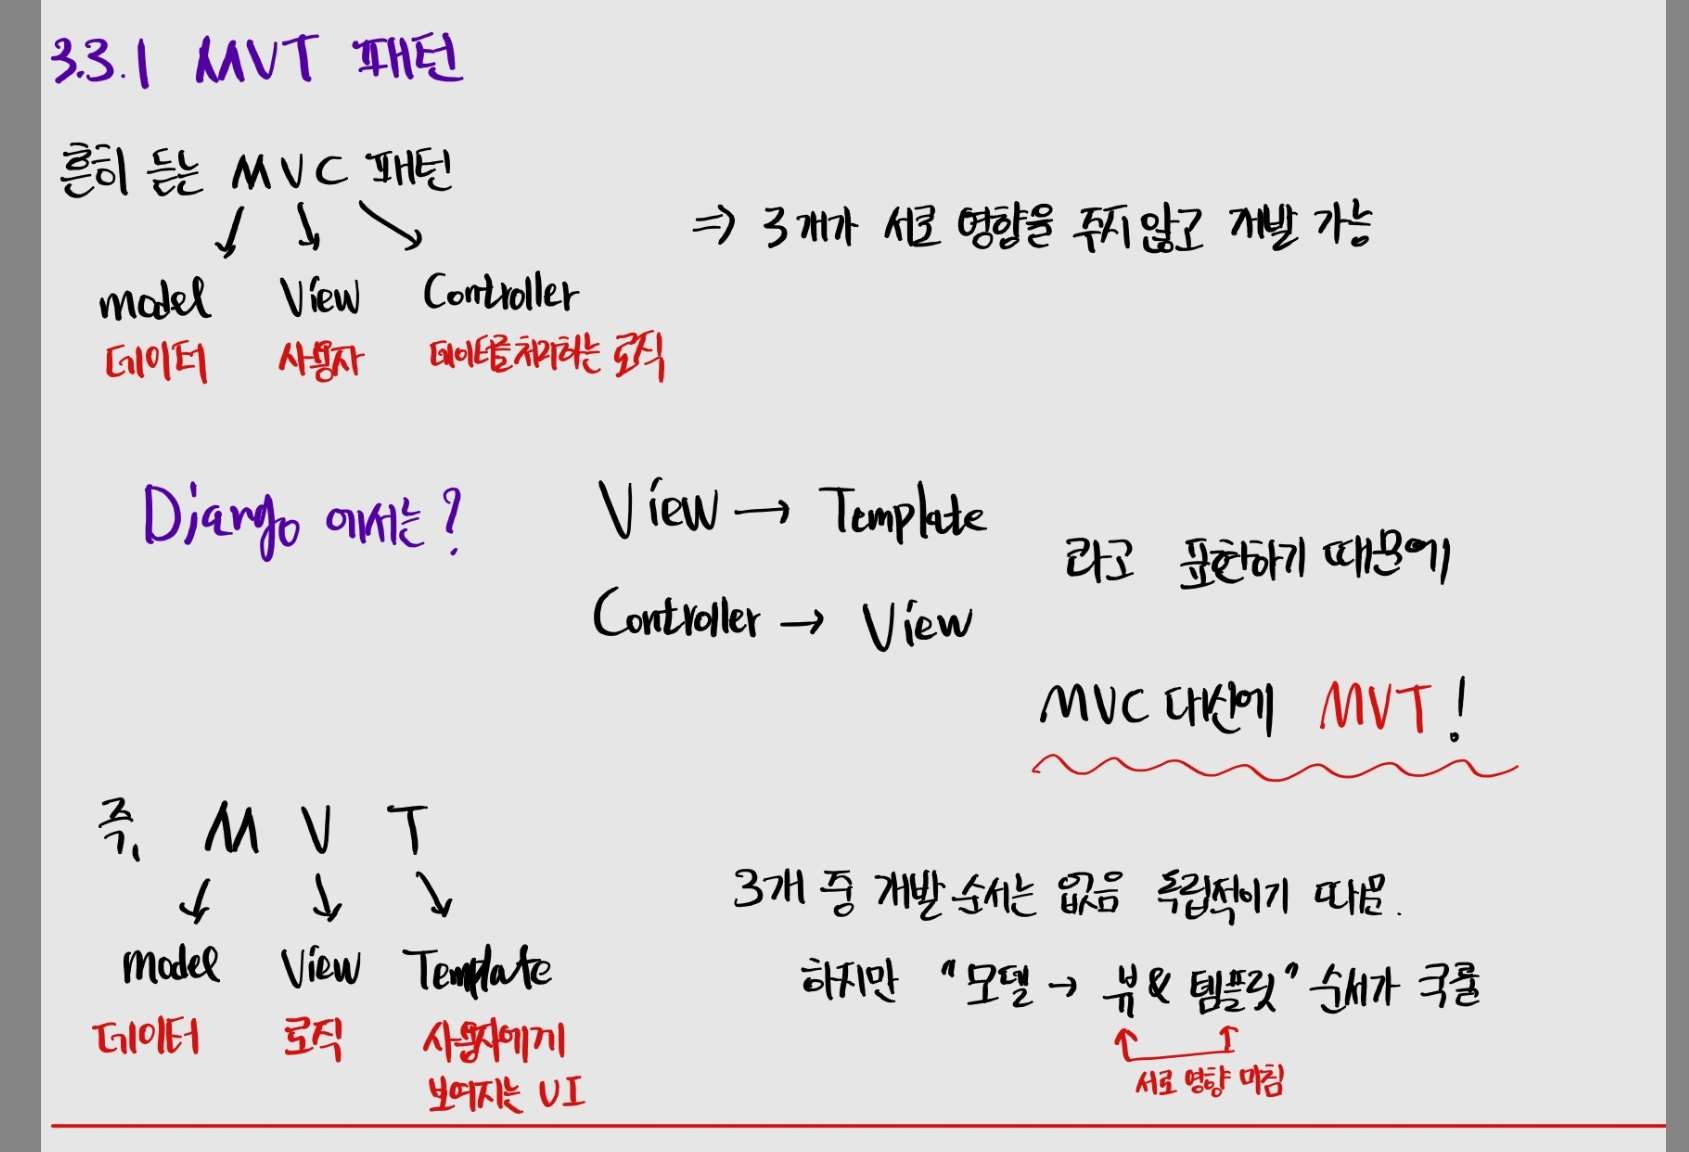 3.3.1 MVT 패턴
흔히 듣는 MVC 패턴
model View Controller
데이터 사용자 데이터를처리하는 로직
⇒ 3개가 서로 영향을 주지않고 개발 가능
Django 에서는?
View → Template
Controller → View
라고 표현하기 때문에
MVC 대신에 MVT!
즉, M V T
model View Template
데이터 로직 사용자에게
보여지는 UI
3개 중 개발순서는 없음 독립적이기 따문.
하지만 "모델 → 뷰 & 템플릿" 순서가 국룰
서로 영향 미침